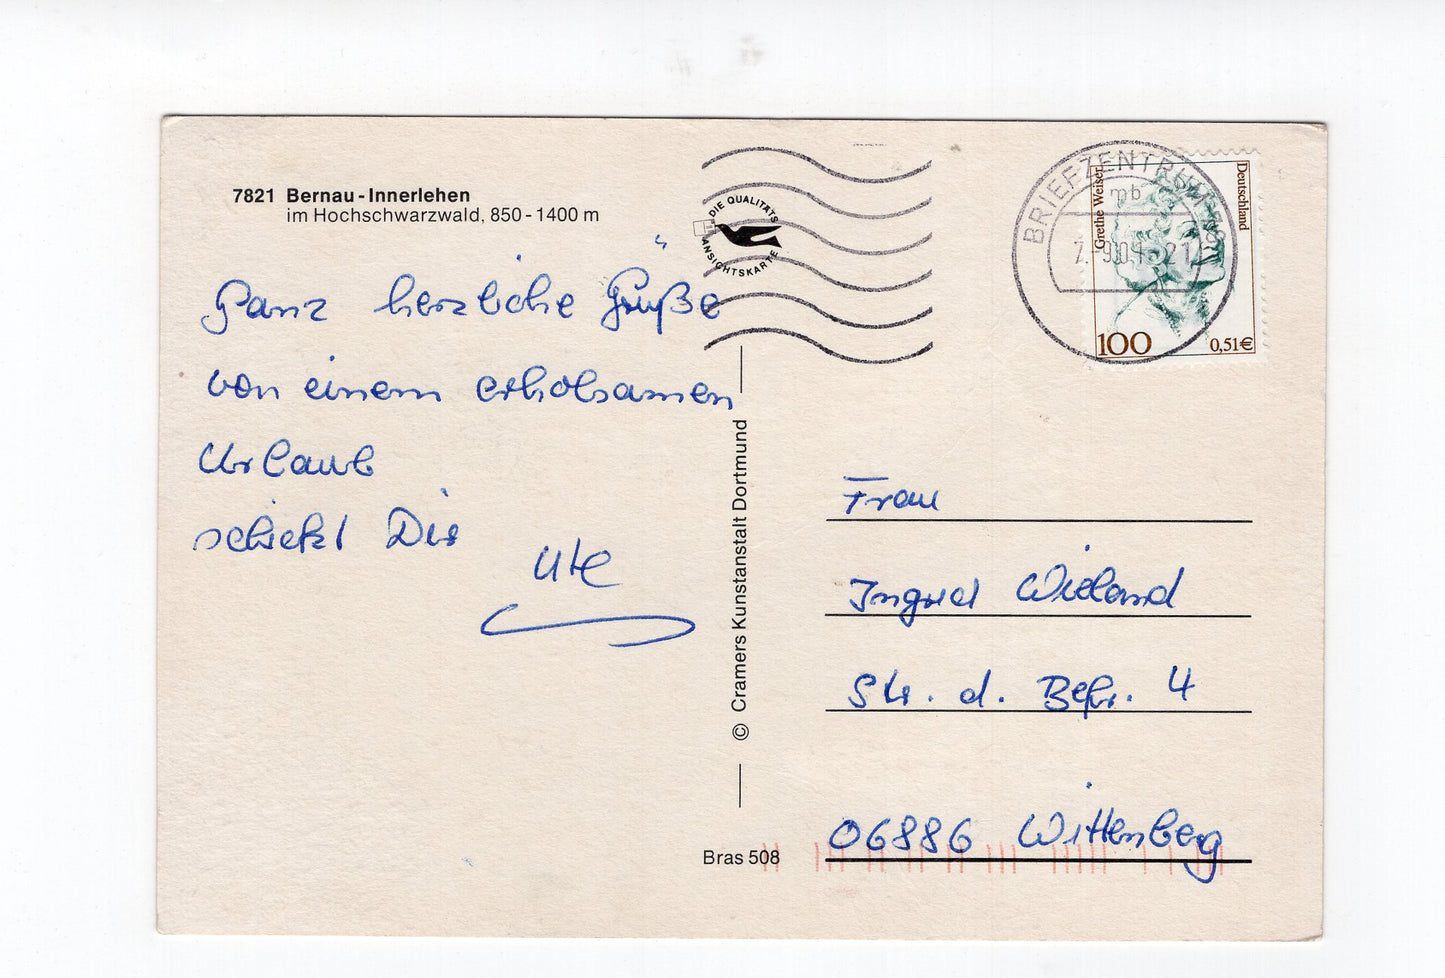 7821 Bernau-Innerlehen
im Hochschwarzwald, 850-1400 m
Ganz herzliche Grüße
von einem erholsamen
Urlaub
schickt Dir
Ute
© Cramers Kunstanstalt Dortmund
Bras 508
DIE QUALITÄTS
ANSICHTSKARTE
BRIEFZENTRUM
mb
Grethe Weiser
Deutschland
100
0,51€
Frau
Ingrid Wieland
Str. d. Befr. 4
06886 Wittenberg